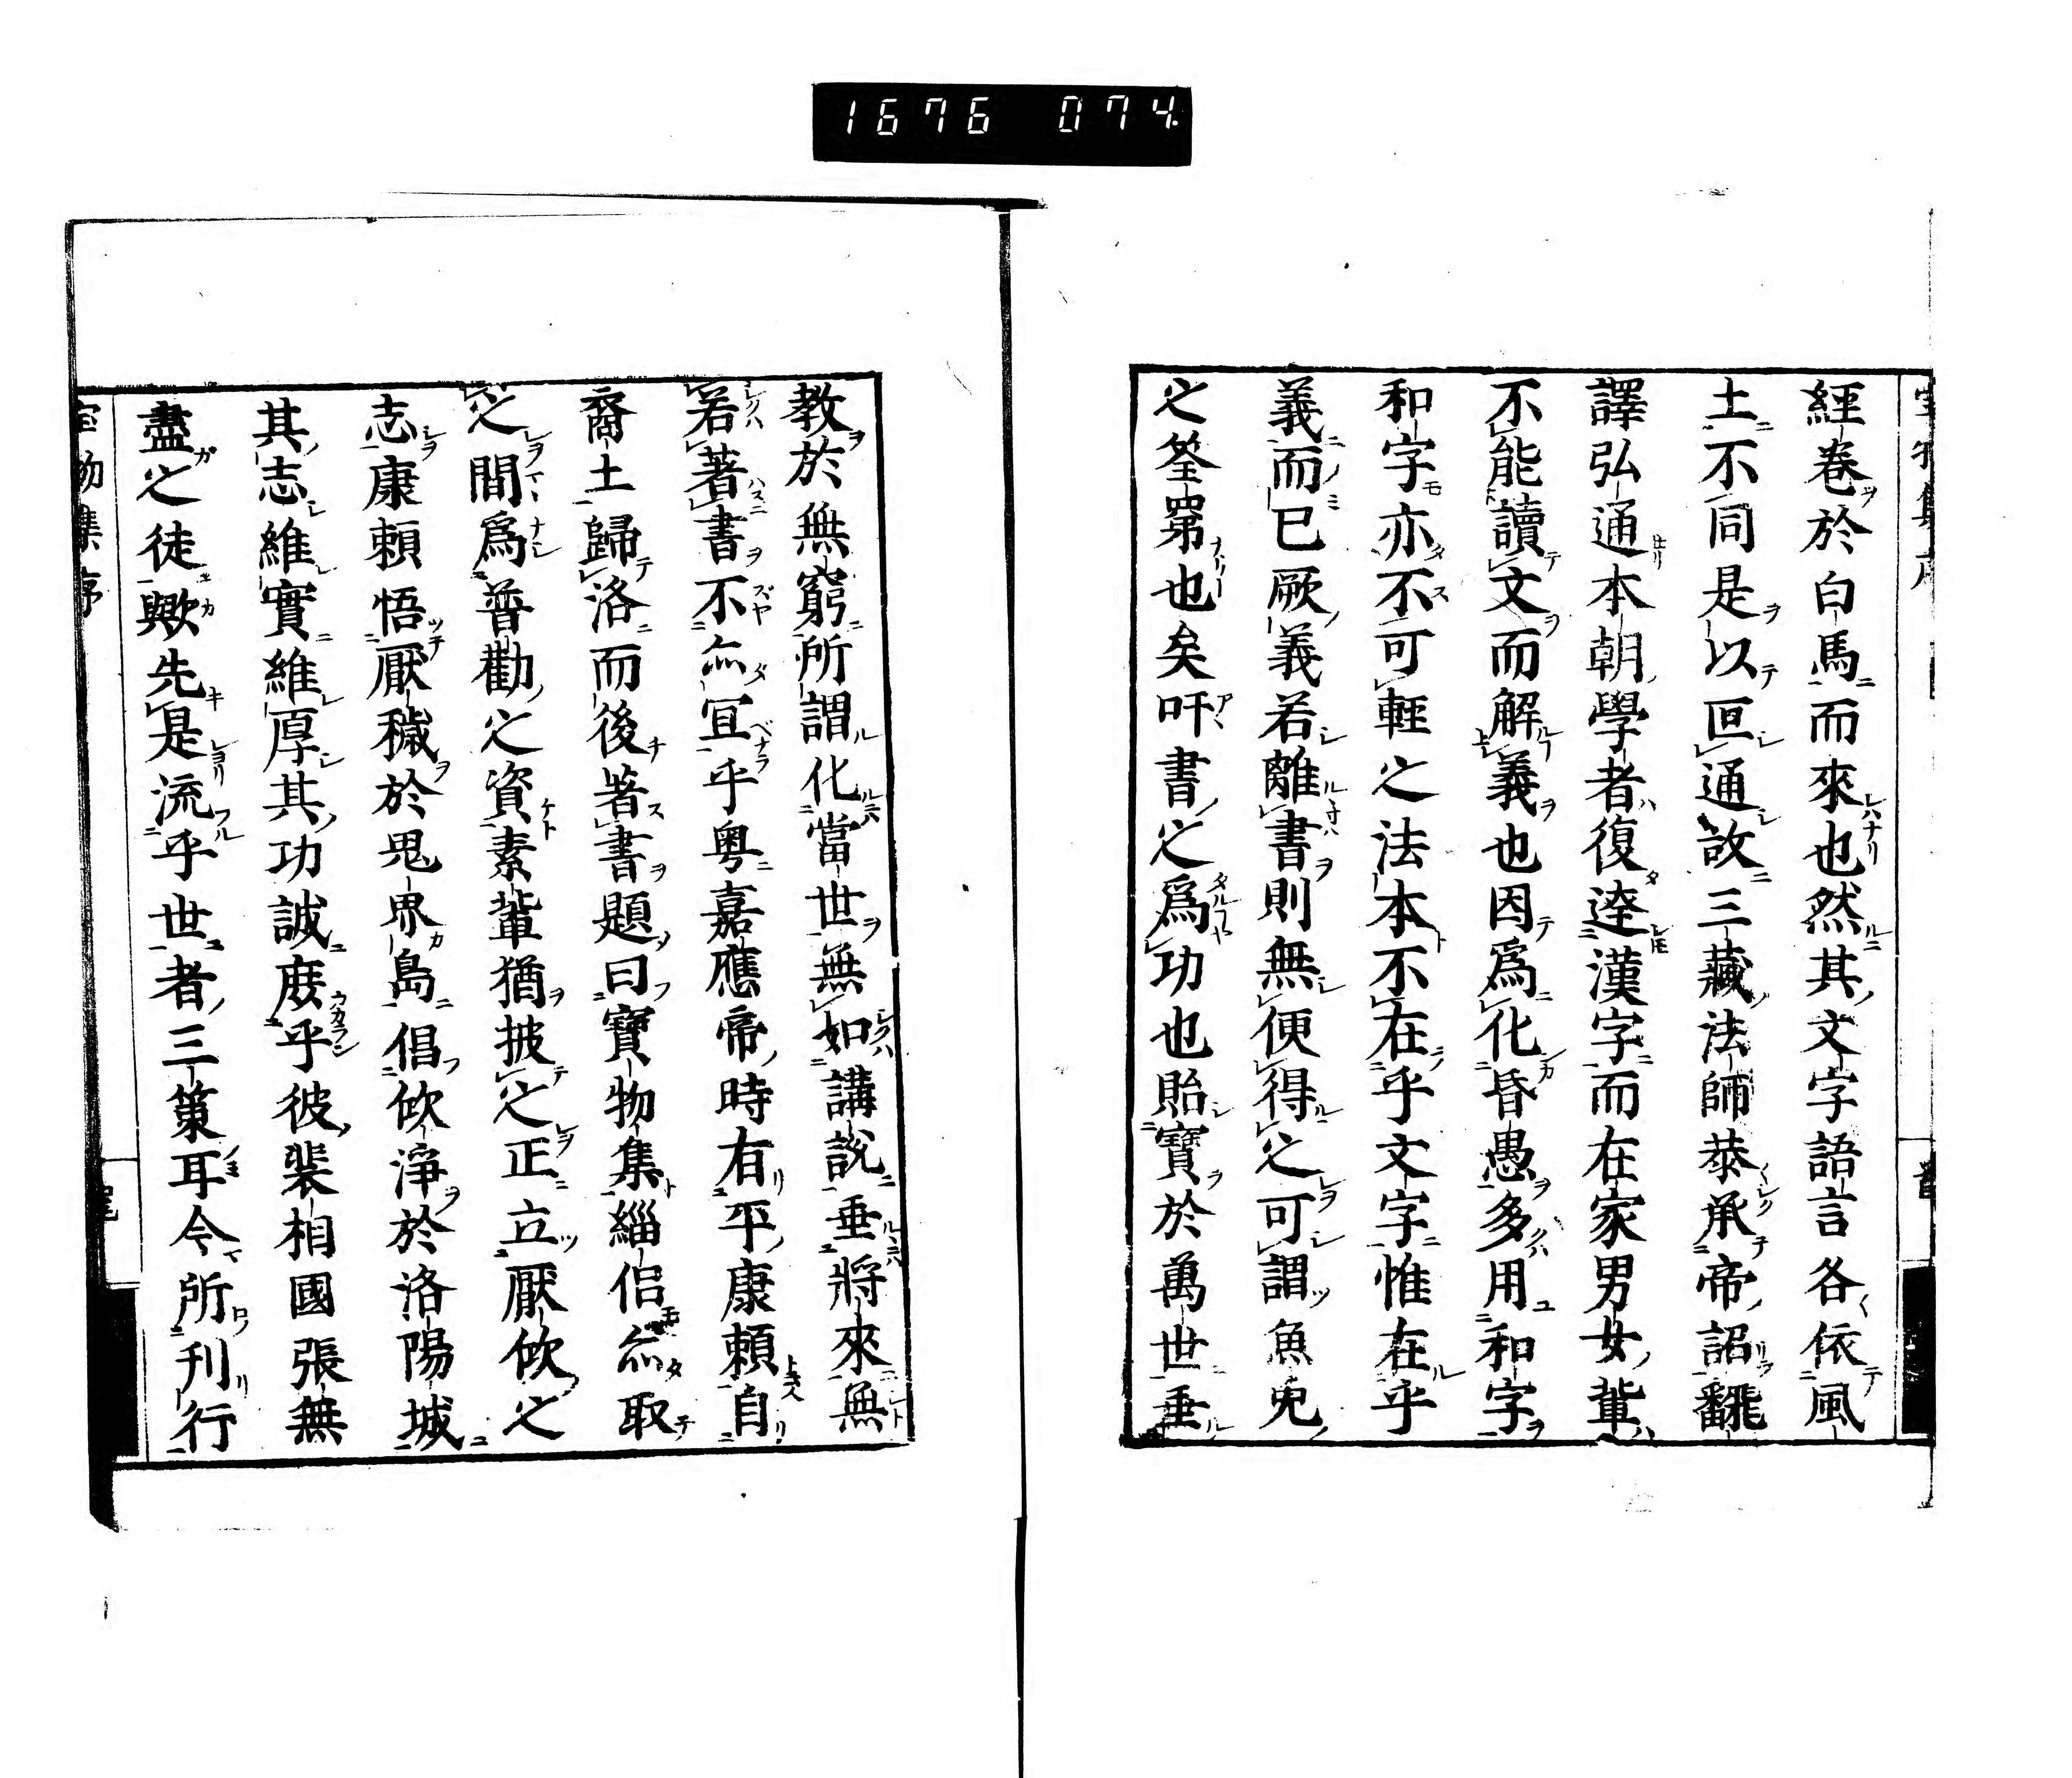 1676 074.
經卷於白馬而來也然其文字語言各依風
土不同是以亘通故三藏法師恭承帝詔翻
譯弘通本朝學者復達漢字而在家男女輩
不能讀文而解義也因爲化昏愚多用和字
和字亦不可輕之法本不在乎文字惟在乎
義而已厥義若離書則無便得之可謂魚兎
之筌罤也矣吁書之爲功也貽寶於萬世垂
教於無窮所謂化當世無如講說垂將來無
若著書不亦冝乎粤嘉應帝時有平康頼自
裔土歸洛而後著書題曰寶物集緇侶亦取
之間爲普勸之資素輩猶披之正立厭欣之
志康頼悟厭穢於鬼界島倡欣淨於洛陽城
其志維實維厚其功誠庶乎彼裴相國張無
盡之徒歟先是流乎世者三策耳今所刋行
物集序